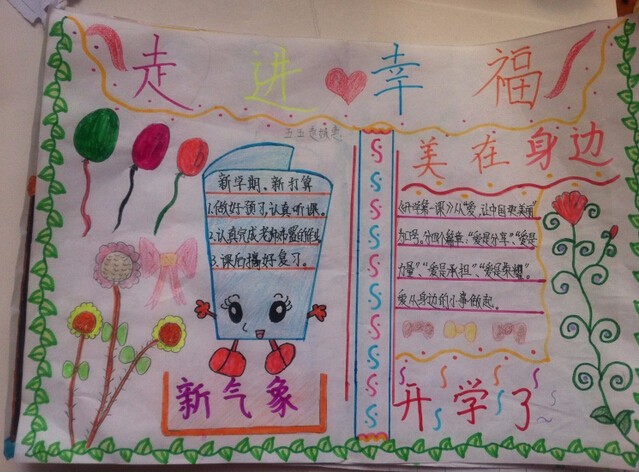 走进幸福
五五班姚尧
美在身边
新学期、新打算
1.做好预习,认真听课。
2.认真完成老师布置的作业
3.课后搞好复习。
《开学第一课》从“爱,让中国更美丽”
为口号,分四个篇章,“爱是分享”、“爱是
力量”、“爱是承担”、“爱是荣耀”。
爱从身边的小事做起。
新气象
开学了